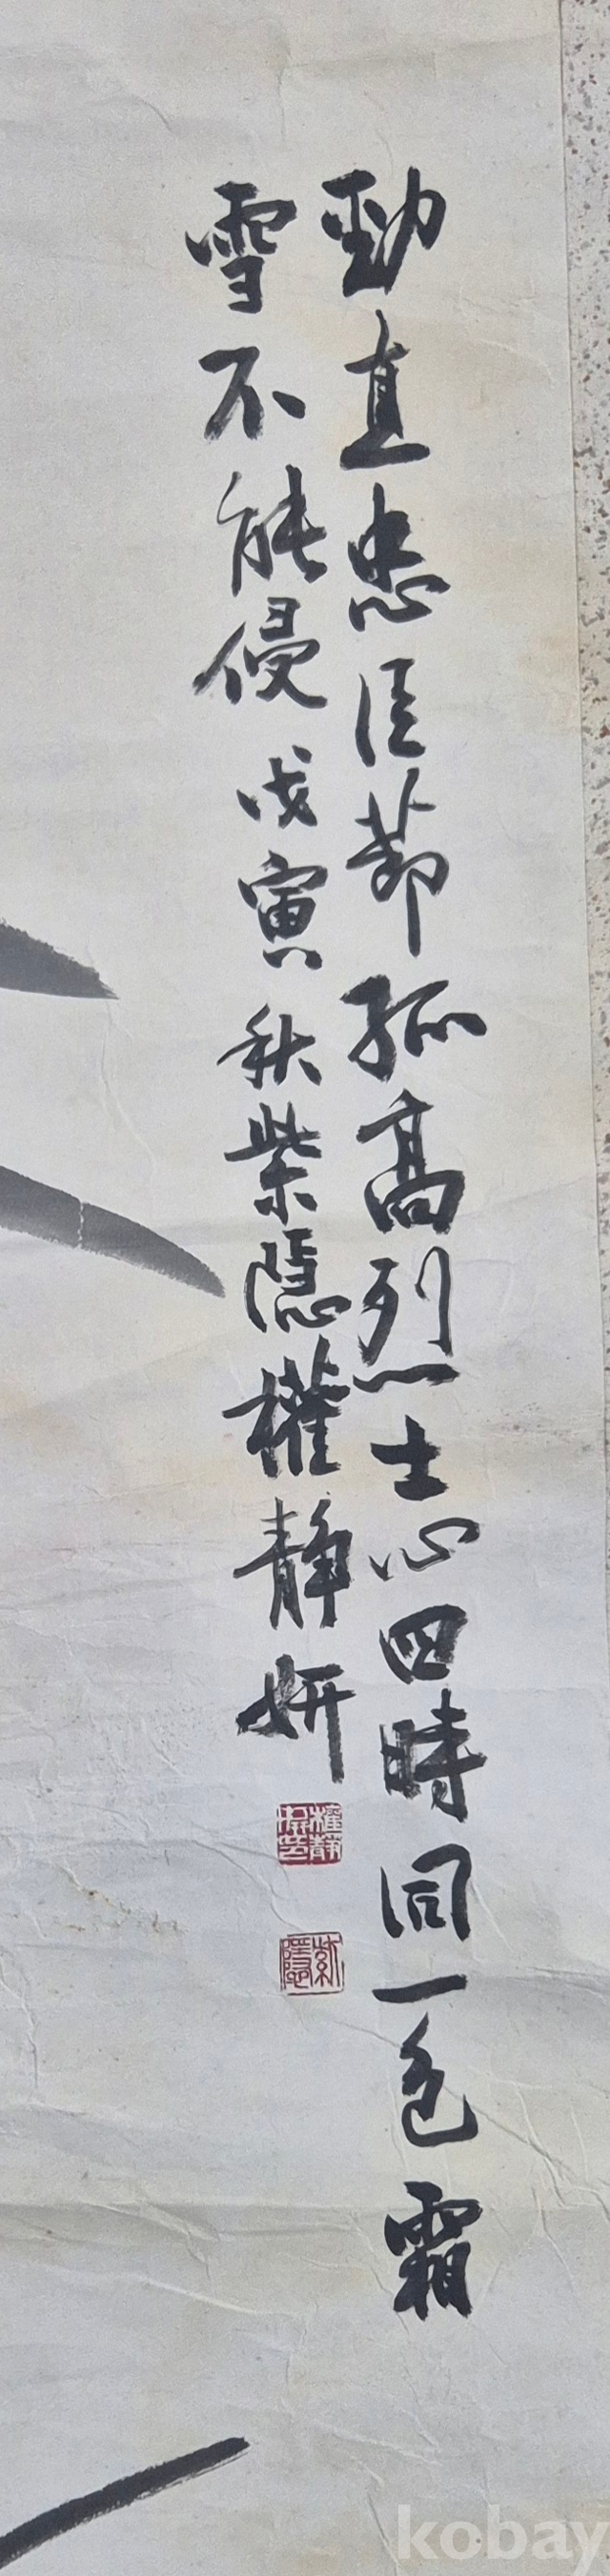 勁直忠臣節孤高烈士心四時同一色霜
雪不能侵 戊寅秋紫隱權靜妍
權靜
紫隱
kobay